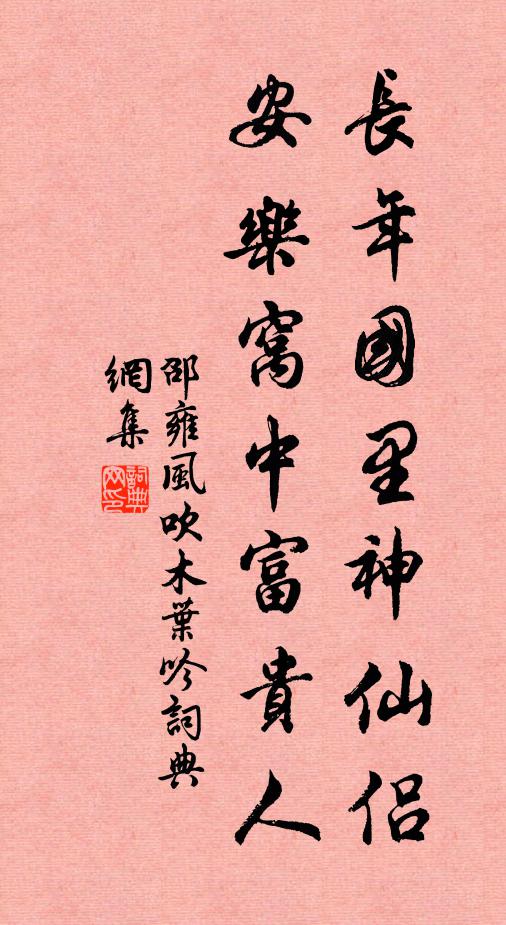 長年國里神仙侶
安樂窩中富貴人
邵雍風吹木葉吟詞典
網集
詞典網印